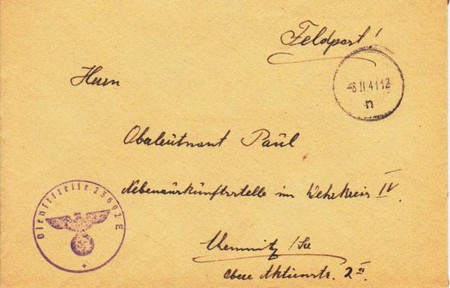 Feldpost!
-6.II.41 12
n
Herrn
Oberleutnant Paul
Nebenauskunftsstelle im Wehrkreis IV
Chemnitz /Sa
obere Aktienstr. 2
Dienststelle 28692 E